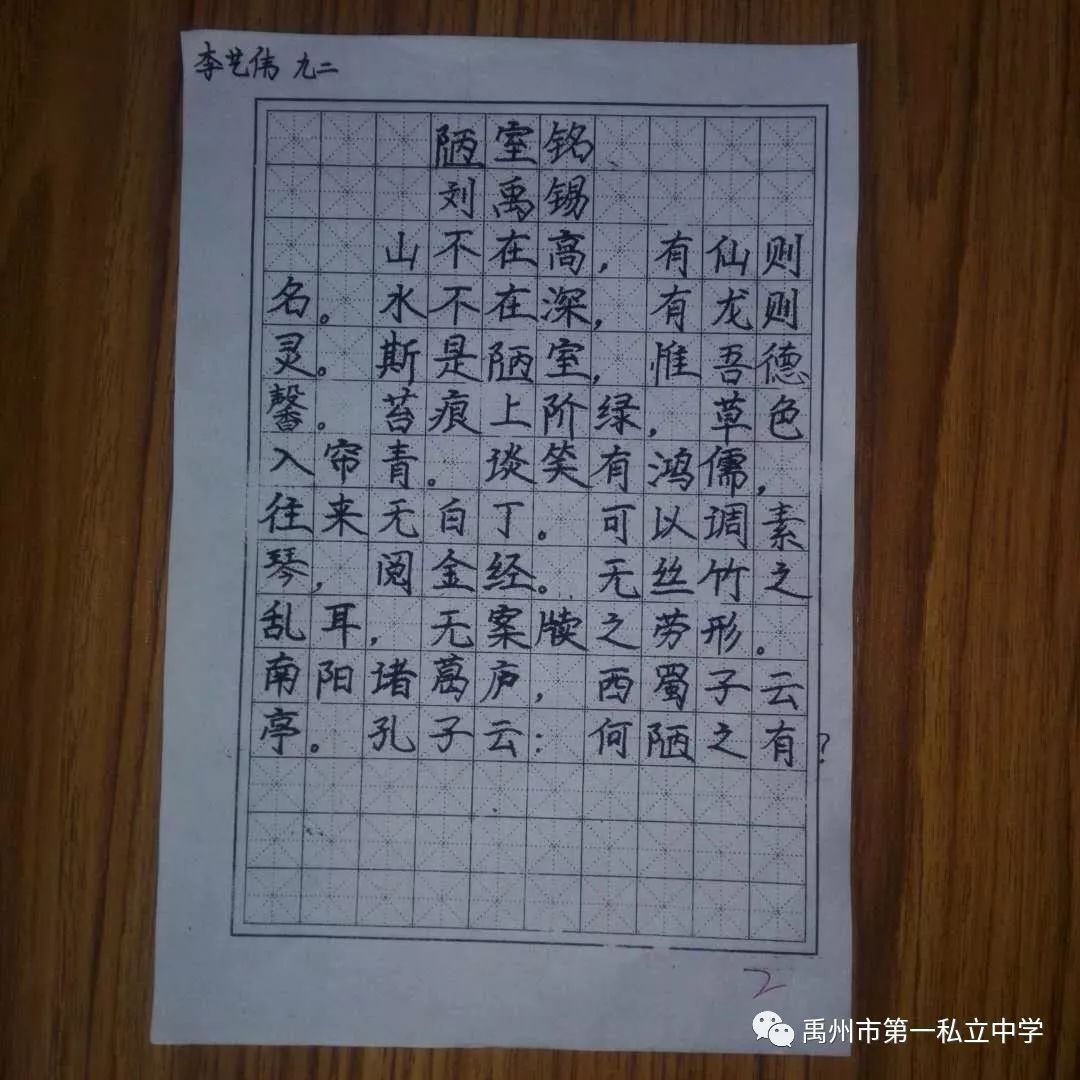 李艺伟 九二
陋室铭
刘禹锡
山不在高，有仙则
名。水不在深，有龙则
灵。斯是陋室，惟吾德
馨。苔痕上阶绿，草色
入帘青。谈笑有鸿儒，
往来无白丁。可以调素
琴，阅金经。无丝竹之
乱耳，无案牍之劳形。
南阳诸葛庐，西蜀子云
亭。孔子云：何陋之有？
2
禹州市第一私立中学